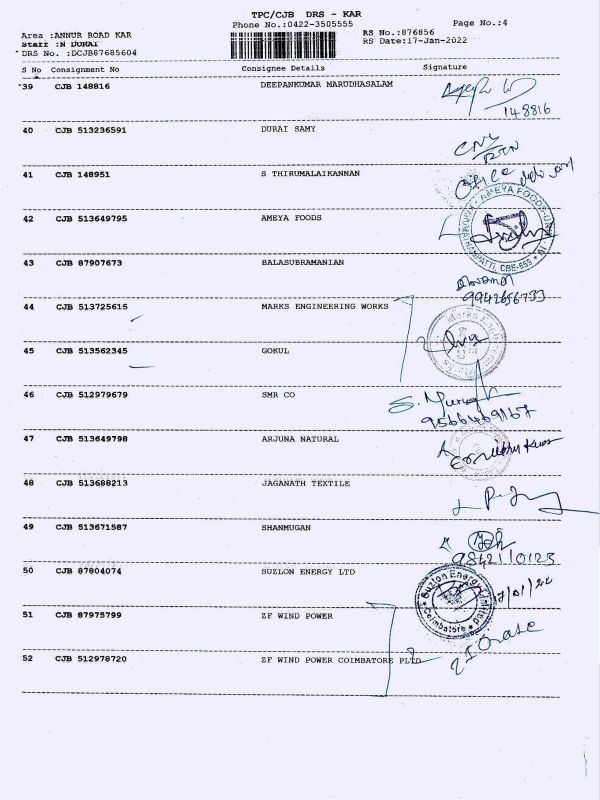 TPC/CJB DRS - KAR
Phone No.:0422-3505555
Page No.:4
Area :ANNUR ROAD KAR
Staff :N DURAI
DRS No. :DCJB87685604
RS No.:876856
RS Date:17-Jan-2022
S No Consignment No Consignee Details Signature
39 CJB 148816 DEEPANKUMAR MARUDHASALAM
148816
40 CJB 513236591 DURAI SAMY
41 CJB 148951 S THIRUMALAIKANNAN
Office
42 CJB 513649795 AMEYA FOODS
AMEYA FOODS
43 CJB 87907673 BALASUBRAMANIAN
9942656733
44 CJB 513725615 MARKS ENGINEERING WORKS
45 CJB 513562345 GOKUL
46 CJB 512979679 SMR CO
9566469167
47 CJB 513649798 ARJUNA NATURAL
48 CJB 513688213 JAGANATH TEXTILE
49 CJB 513671587 SHANMUGAN
9842110123
50 CJB 87804074 SUZLON ENERGY LTD
Suzlon Energy Limited
Coimbatore
51 CJB 87975799 ZF WIND POWER
52 CJB 512978720 ZF WIND POWER COIMBATORE PLTD